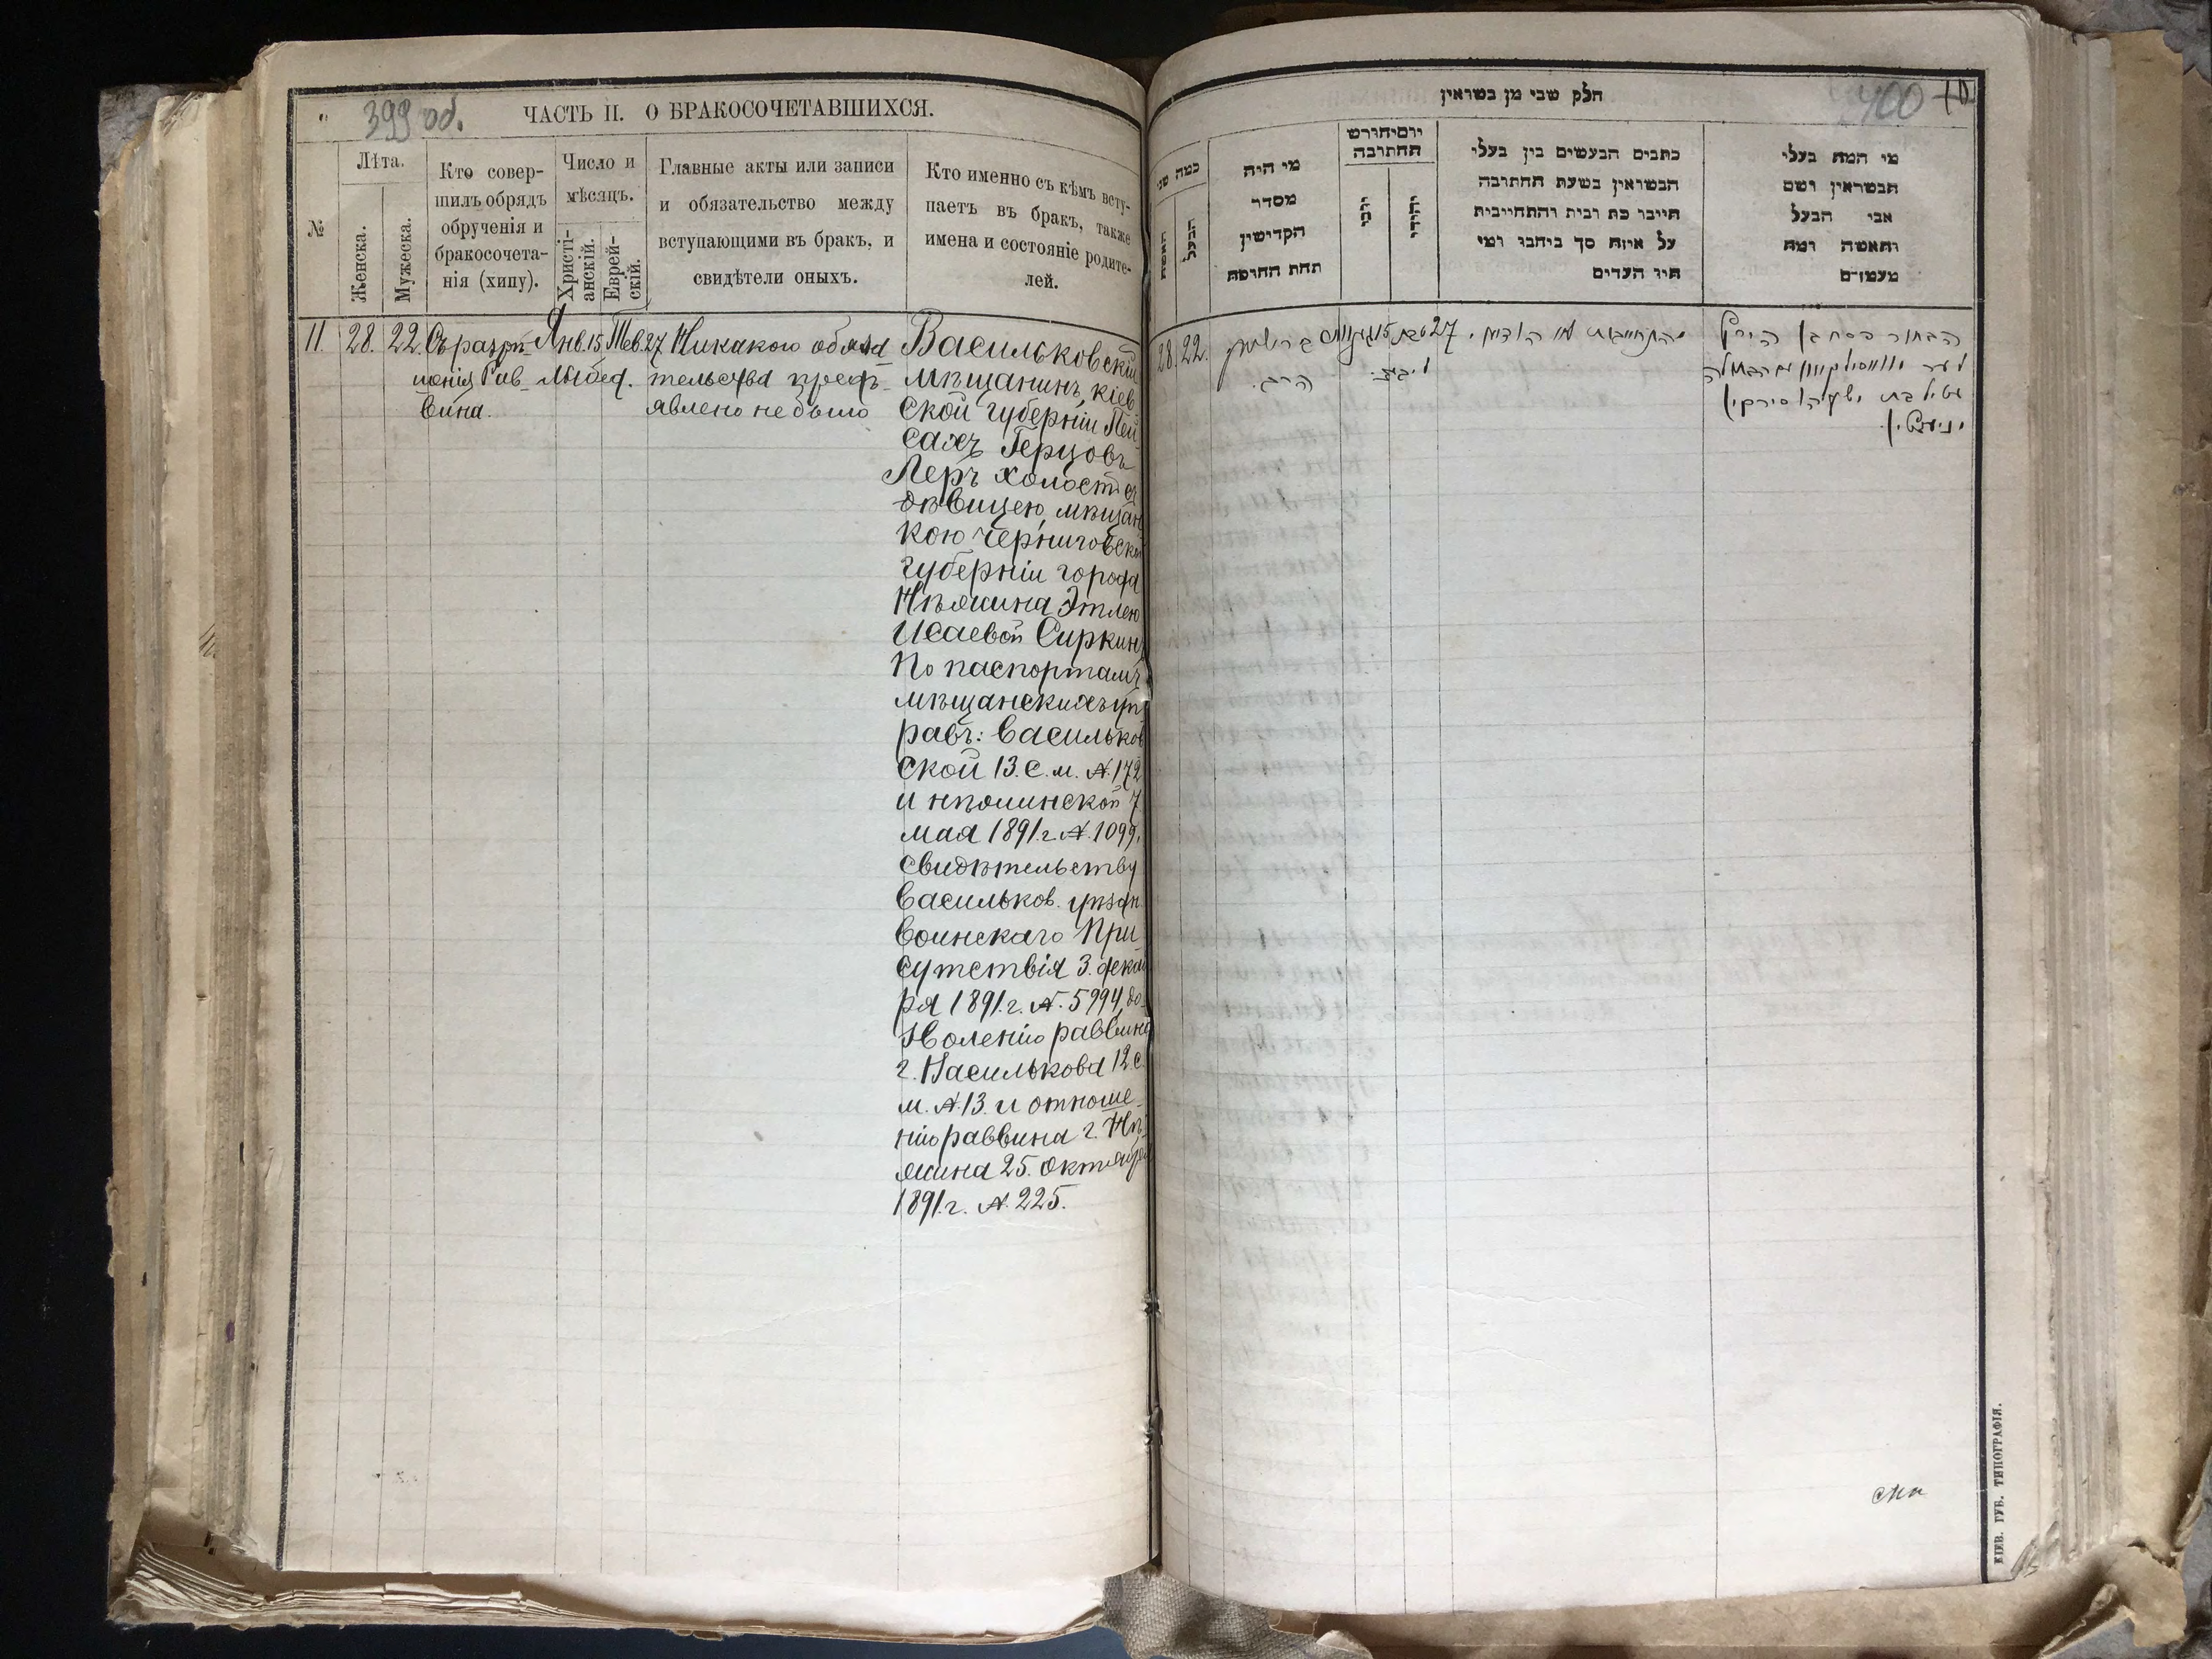 399 об.
ЧАСТЬ II. О БРАКОСОЧЕТАВШИХСЯ.
№
Лѣта.
Женска.
Мужеска.
Кто совер-
шилъ обрядъ
обрученія и
бракосочета-
нія (хипу).
Число и
мѣсяцъ.
Христі-
анскій.
Еврей-
скій.
Главные акты или записи
и обязательство между
вступающими въ бракъ, и
свидѣтели оныхъ.
Кто именно съ кѣмъ всту-
паетъ въ бракъ, также
имена и состояніе родите-
лей.
11. 28. 22.
Съ разрѣ-
шенія Рав-
вина.
Янв. 15 Тев. 27
Лыбед.
Никакого обяза
тельства предъ-
явлено не было
Васильковскій
мѣщанинъ, кіев
ской губерніи Пей
сахъ Герцовъ
Леръ холостъ съ
дѣвицею, мѣщан
кою черниговской
губерніи города
Нѣжина Этлею
Исаевой Сиркинъ
По паспортамъ
мѣщанскихъ уп
равъ: Васильков
ской 13. с. м. №. 172
и нѣжинской 7
мая 1891. г. №. 1099,
свидѣтельству
Васильков. уѣздн.
воинскаго При
сутствія 3. декаб
ря 1891. г. №. 5994, до-
зволенію раввина
г. Василькова 12 с.
м. №. 13. и отноше-
нію раввина г. Нѣ-
жина 25. октября
1891. г. №. 225.
400
חלק שני מן בשואין
כמה שני
האשה
הבעל
מי היה
מסדר
הקדישין
תחת החופה
יום וחודש
החתונה
יוני
יהודי
כתבים הנעשים בין בעלי
הנשואין בשעת החתונה
חייבו כת ובית והתחייבות
על איזה סך ביחבו ומי
היו העדים
מי המה בעלי
הנשואין ושם
אבי הבעל
והאשה ומה
מעמדם
28. 22.
הרב.
15
27 טבת
הבחור פסח בן הירץ
לער
עטיל בת ישעיהו סירקין
КІЕВ. ГУБ. ТИПОГРАФІЯ.